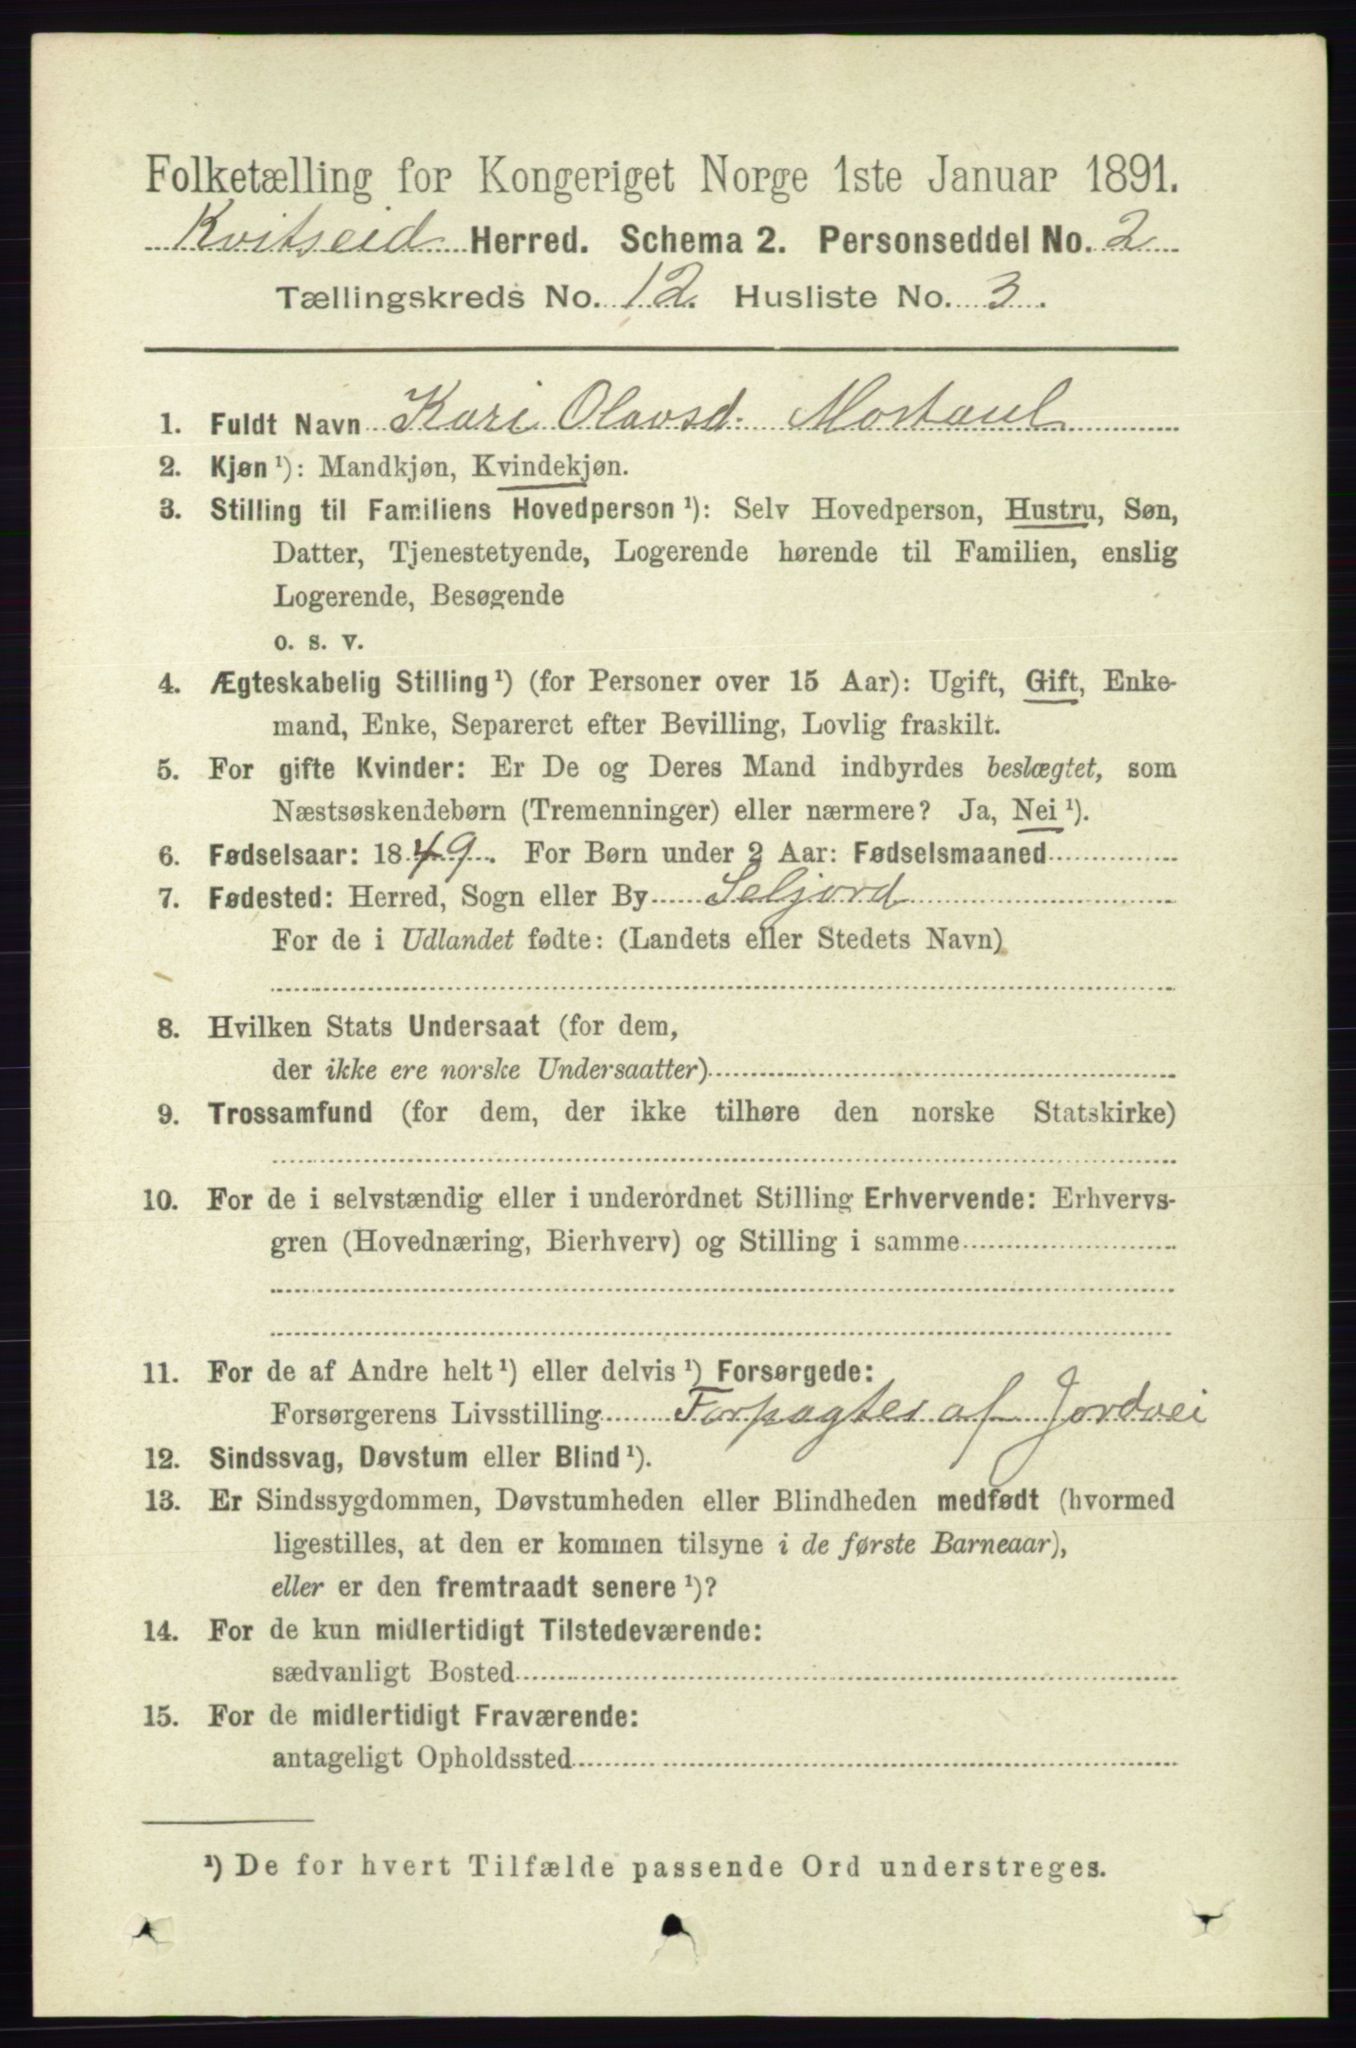 Folketælling for Kongeriget Norge 1ste Januar 1891.
Kvitseid Herred. Schema 2. Personseddel No. 2
Tællingskreds No. 12. Husliste No. 3.
1. Fuldt Navn Kari Olavsd. Mostaul
2. Kjøn ¹): Mandkjøn, Kvindekjøn.
3. Stilling til Familiens Hovedperson ¹): Selv Hovedperson, Hustru, Søn,
Datter, Tjenestetyende, Logerende hørende til Familien, enslig
Logerende, Besøgende
o. s. v.
4. Ægteskabelig Stilling ¹) (for Personer over 15 Aar): Ugift, Gift, Enke-
mand, Enke, Separeret efter Bevilling, Lovlig fraskilt.
5. For gifte Kvinder: Er De og Deres Mand indbyrdes beslægtet, som
Næstsøskendebørn (Tremenninger) eller nærmere? Ja, Nei ¹).
6. Fødselsaar: 1849. For Børn under 2 Aar: Fødselsmaaned
7. Fødested: Herred, Sogn eller By Seljord
For de i Udlandet fødte: (Landets eller Stedets Navn)
8. Hvilken Stats Undersaat (for dem,
der ikke ere norske Undersaatter)
9. Trossamfund (for dem, der ikke tilhøre den norske Statskirke)
10. For de i selvstændig eller i underordnet Stilling Erhvervende: Erhvervs-
gren (Hovednæring, Bierhverv) og Stilling i samme
11. For de af Andre helt ¹) eller delvis ¹) Forsørgede:
Forsørgerens Livsstilling Forpagter af Jordvei
12. Sindssvag, Døvstum eller Blind ¹).
13. Er Sindssygdommen, Døvstumheden eller Blindheden medfødt (hvormed
ligestilles, at den er kommen tilsyne i de første Barneaar),
eller er den fremtraadt senere ¹)?
14. For de kun midlertidigt Tilstedeværende:
sædvanligt Bosted
15. For de midlertidigt Fraværende:
antageligt Opholdssted
¹) De for hvert Tilfælde passende Ord understreges.